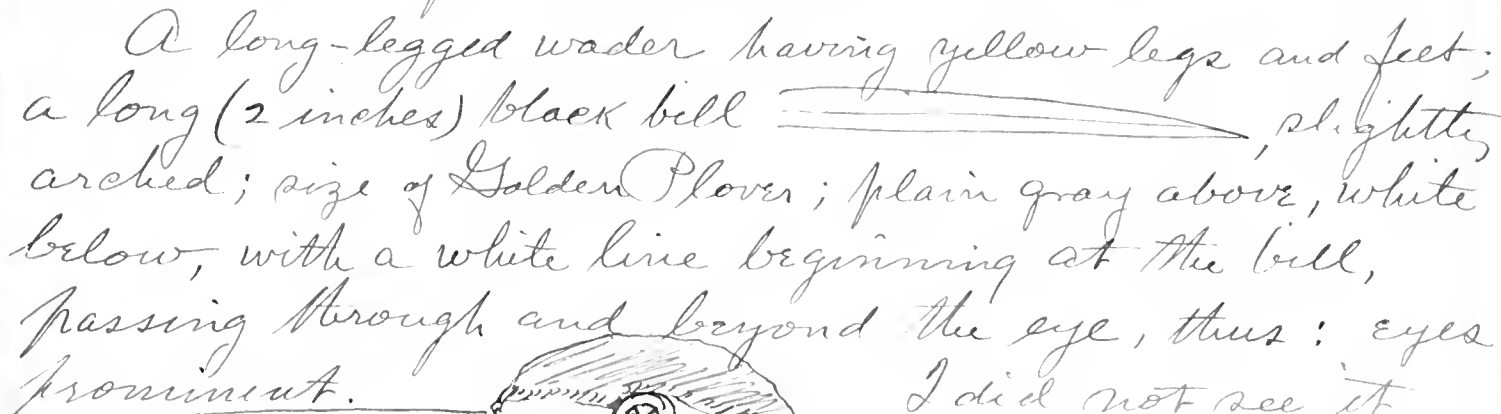 A long-legged wader having yellow legs and feet;
a long (2 inches) black bill , slightly
arched; size of Golden Plover; plain gray above, white
below, with a white line beginning at the bill,
passing through and beyond the eye, thus: eyes
prominent. I did not see it